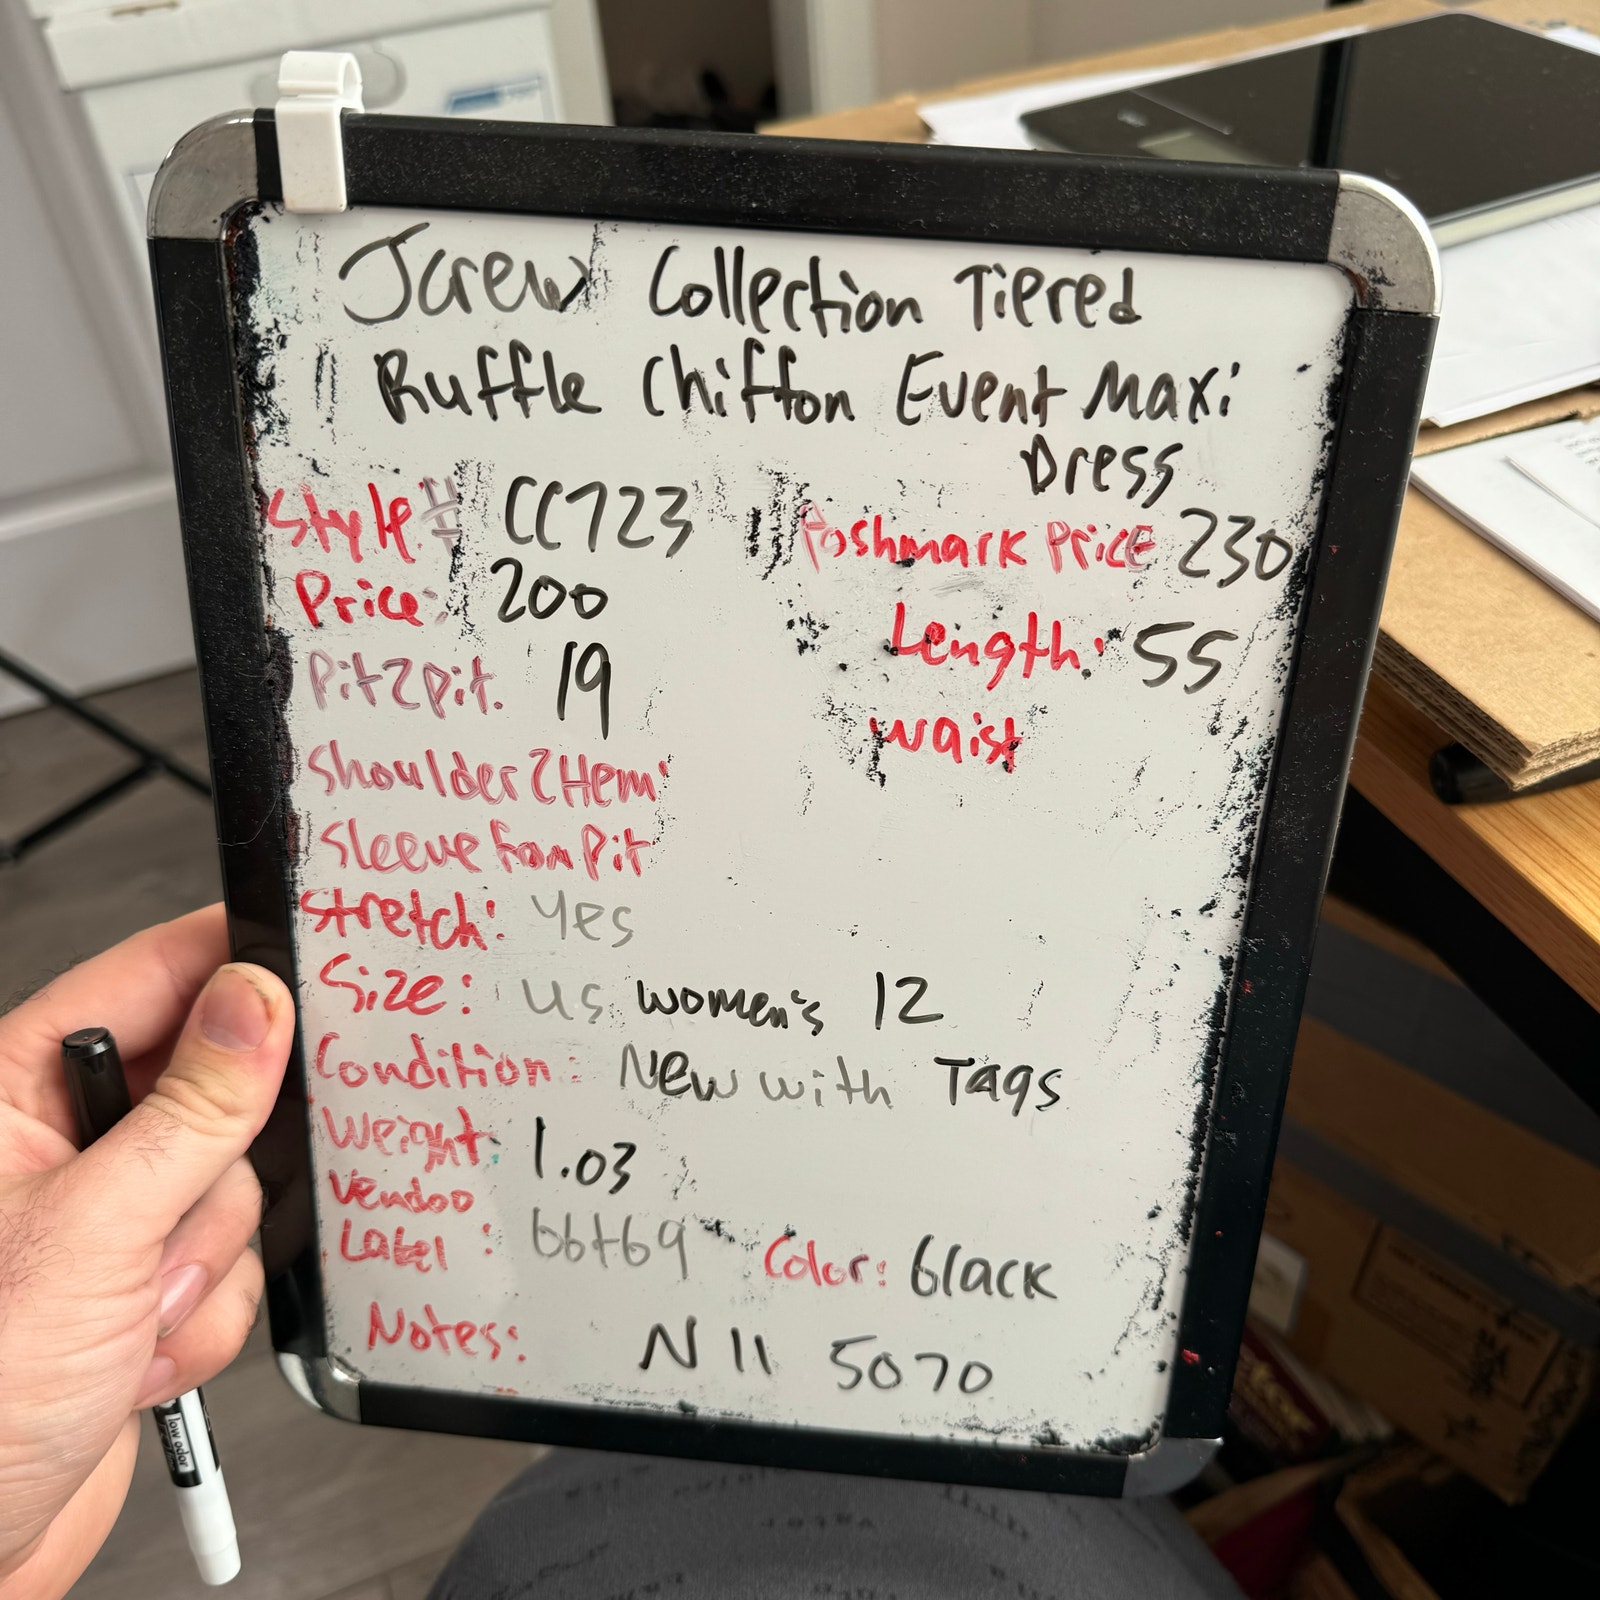 Jcrew Collection Tiered
Ruffle Chiffon Event Maxi
Dress
Style # CC723 Poshmark Price 230
Price: 200 Length: 55
Pit2Pit. 19 waist
Shoulder2Hem:
Sleeve from Pit
Stretch: Yes
Size: US women's 12
Condition: New with Tags
Weight: 1.03
Vendoo
Label : bbtb9 Color: black
Notes: N11 5070
low odor